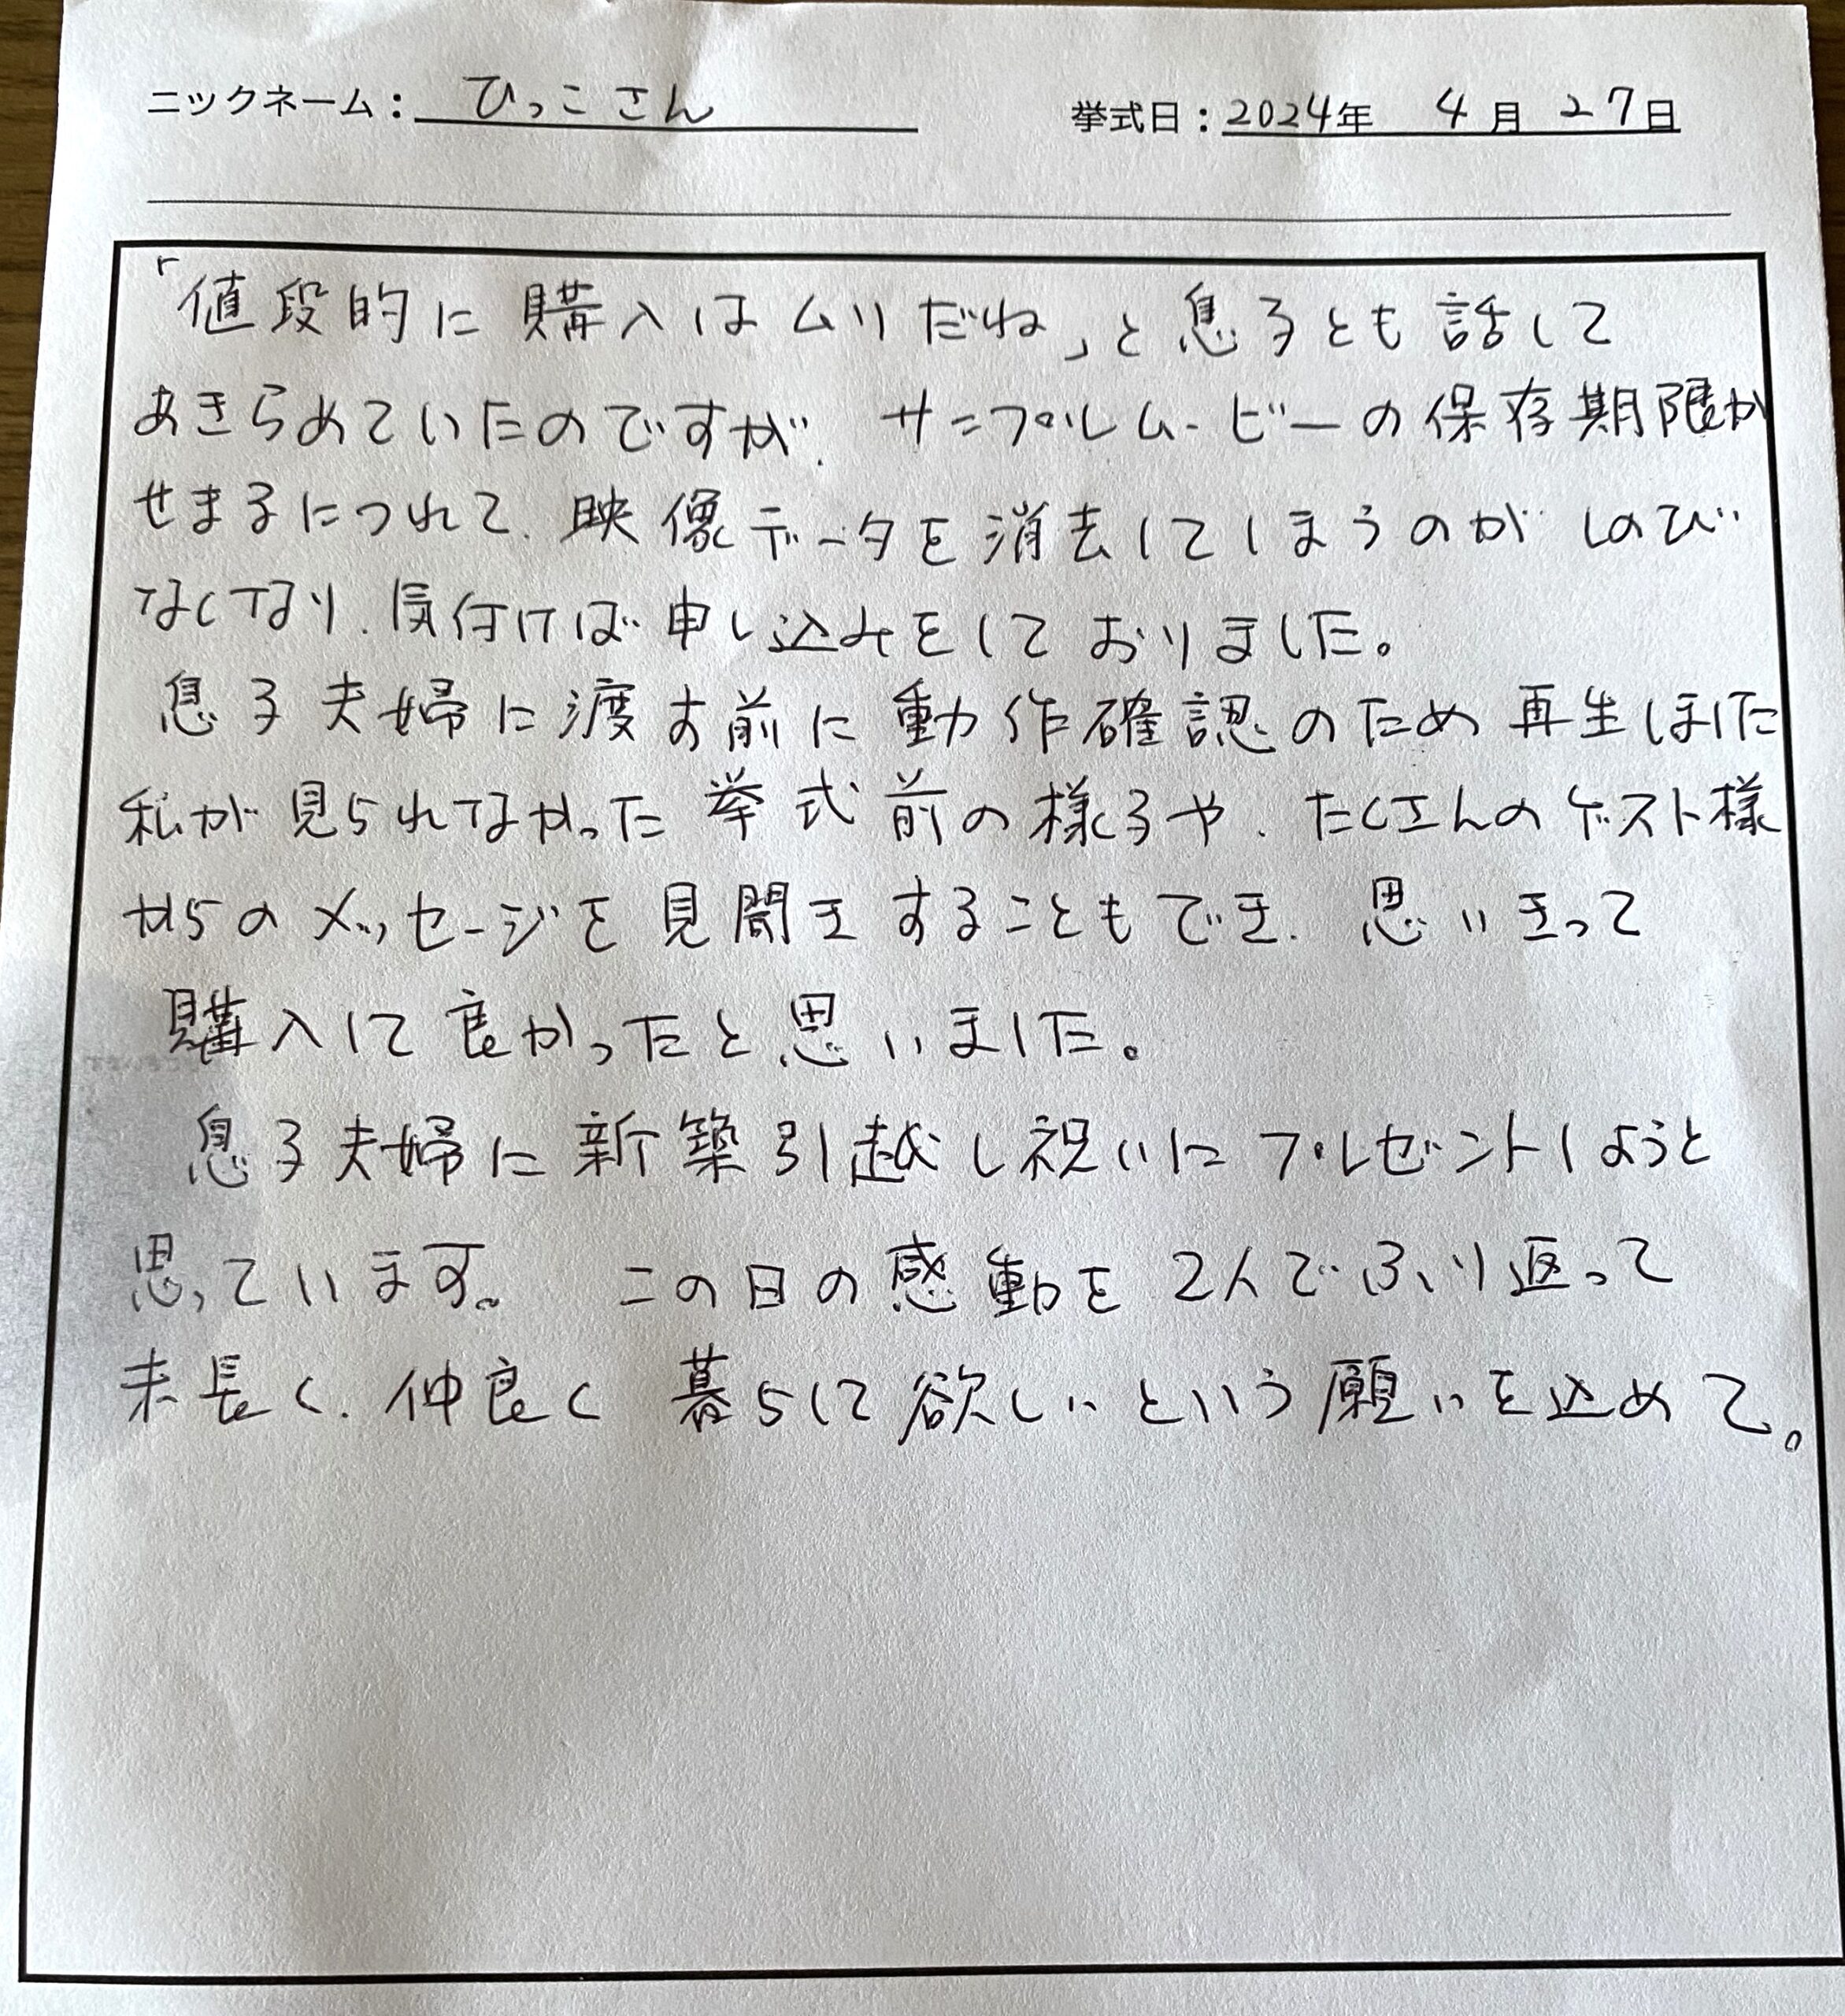 ニックネーム：ひっこさん　挙式日：2024年 4月 27日
「値段的に購入はムリだね」と息子とも話して
あきらめていたのですが、サンプルムービーの保存期限が
せまるにつれて、映像データを消去してしまうのが しのび
なくなり、気付けば申し込みをしておりました。
息子夫婦に渡す前に動作確認のため再生しました
私が見られなかった挙式前の様子や、たくさんのゲスト様
からのメッセージを見聞きすることもでき、思いきって
購入して良かったと思いました。
息子夫婦に新築引越し祝いにプレゼントしようと
思っています。 この日の感動を2人でふり返って
末長く、仲良く 暮らして欲しいという願いを込めて。